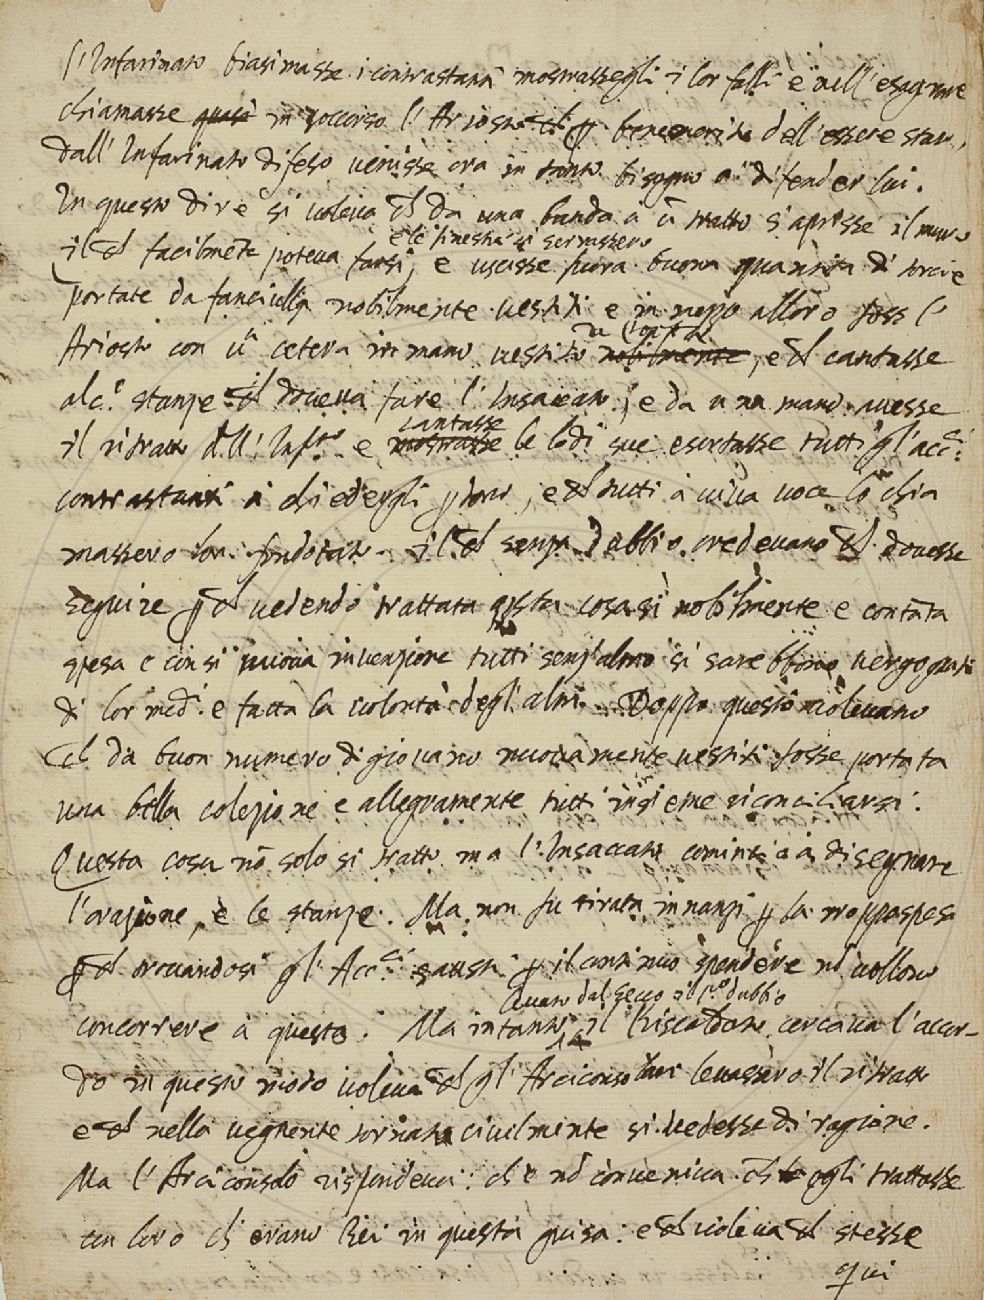 l'Infarinato biasimasse i contrastanti mostrassegli i lor falli e nell'esagerare
chiamasse quasi in soccorso l'Ariosto ch' p benemerito dell'essere stato
dall'Infarinato difeso venisse ora in tanto bisogno a difender lui.
In questo dire si voleva ch da una banda a û tratto s'aprisse il muro
e le finestre si serrassero
il ch facilmēte poteva farsi, e uscisse fuora buona quantità di torcie
portate da fanciulli nobilmente vestiti e in mezo alloro foss l'
da
Ariosto con uª cetera in mano vestito nobilmente, e ch cantasse
alcᵉ stanze ch doveva fare l'Insaccato, e da una mano avesse
cantasse
il ritratto dell'Infᵗᵒ e mostrasse le lodi sue esortasse tutti gl'accⁱ
contrastanti à chiedergli pdono, e ch tutti à viva voce lo chia
massero il ch senza dubbio credevano ch dovesse
seguire p ch vedendo trattata qsta cosa si nobilmente e con tāta
spesa e con si nuova invenzione tutti senz'altro si sarebbono vergognati
di lor medⁱ e fatta la volontà degl'altri. Doppo questo volevano
ch da buon numero di giovani nuovamente vestiti fosse portata
una bella colezione e allegramente tutti insieme riconciliarsi.
Questa cosa nō solo si trattò ma l'Insaccato cominciò à disegnare
l'orazione, e le stanze. Ma non fu tirata innanzi p la troppa spesa
p ch trovandosi gl'Accⁱ p il continuo spendere nō vollono
levato dal Secco il pᵒ dubbio
concorrere à questo. Ma intanto il Riscaldato cercava l'accor-
do in questo modo voleva ch gl'Arciconsoli levassero il ritratto
e ch nella vegnente tornata civilmente si vedesse di ragione.
Ma l'Arciconsolo rispondeva: ch'e nō conveniva ch egli trattasse
con loro ch'erano Rei in questa guisa: e ch voleva ch stesse
qui